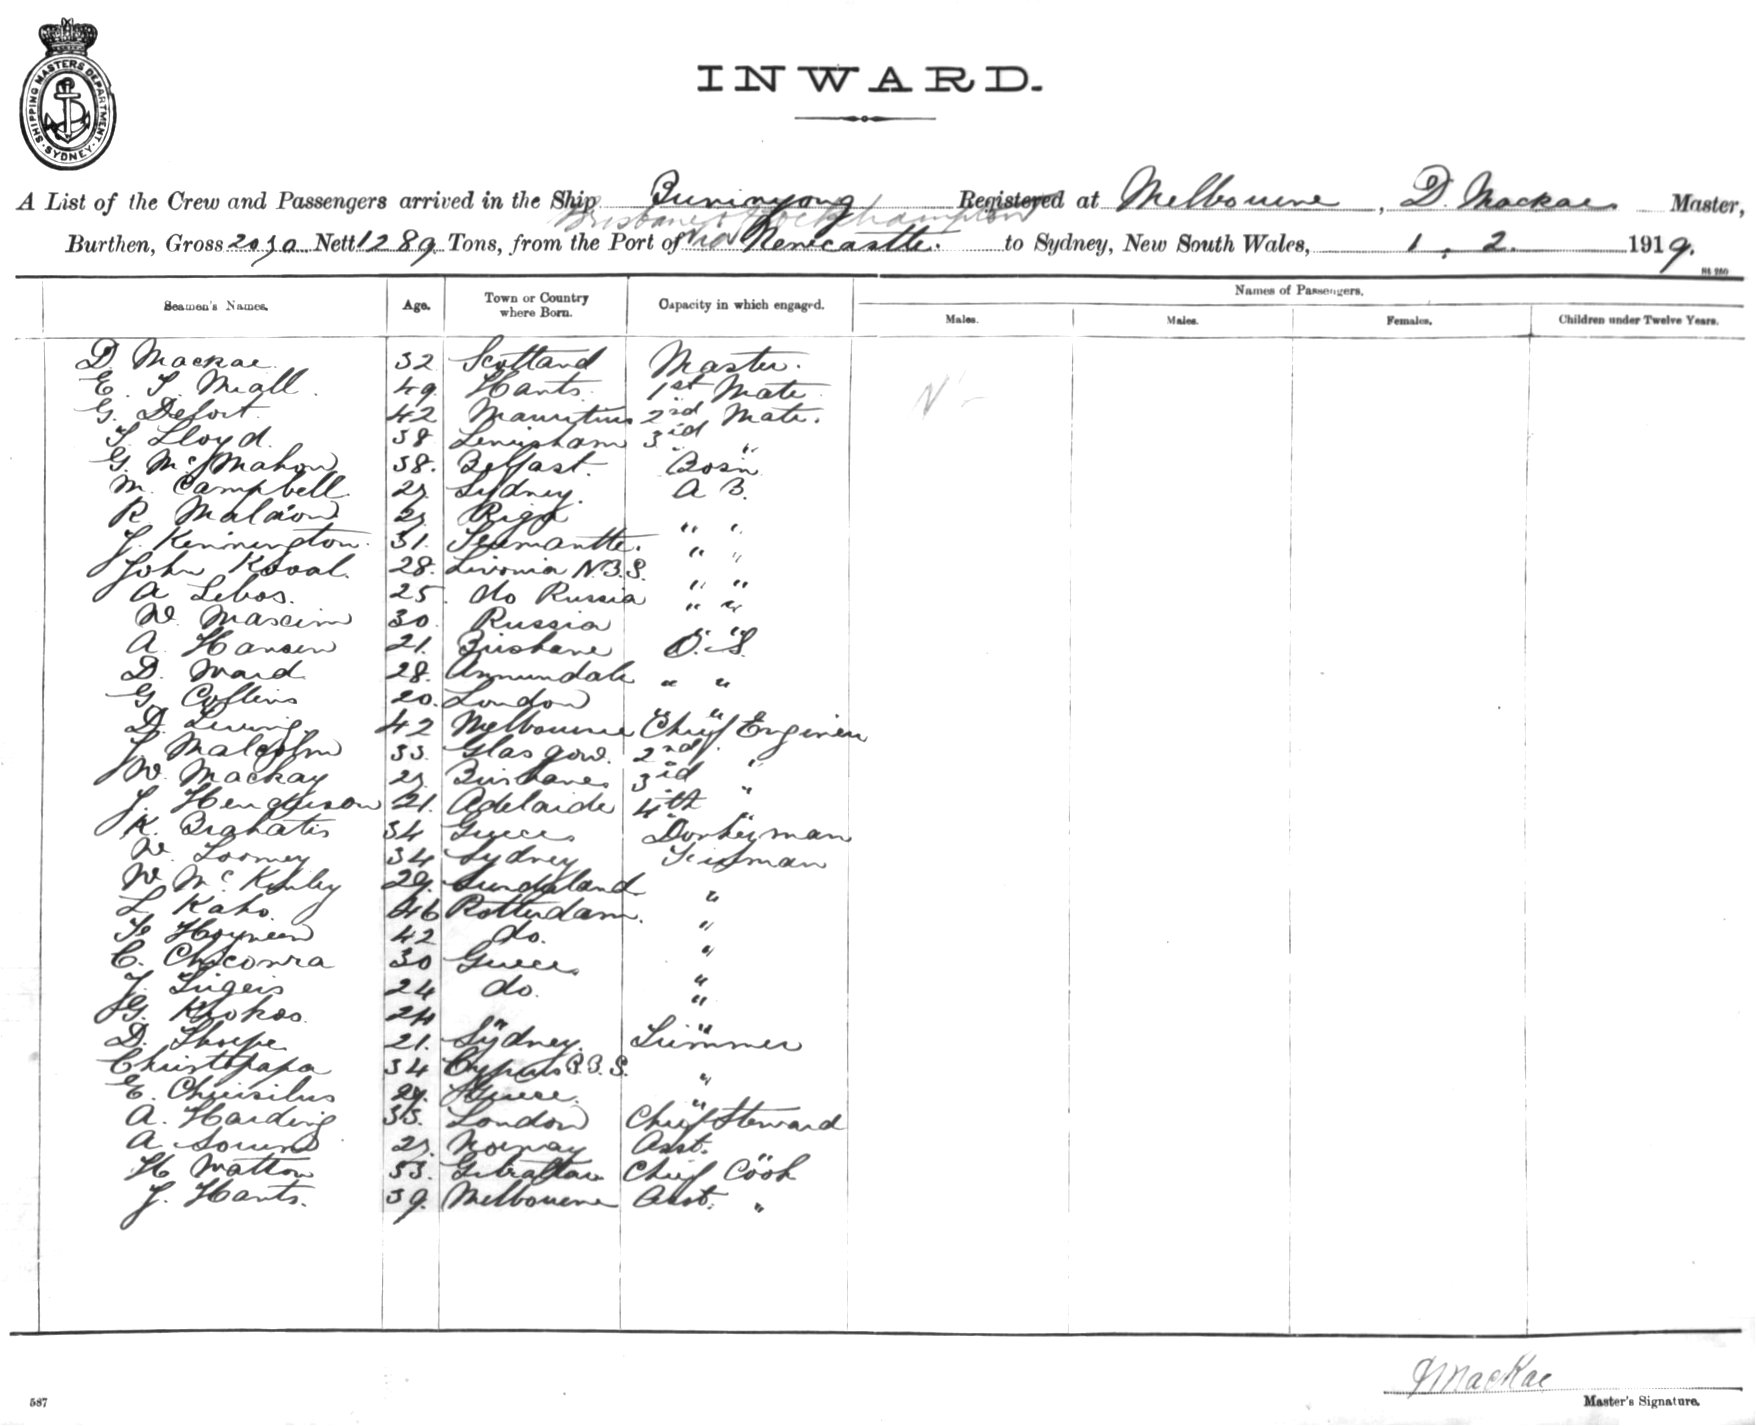 SHIPPING MASTERS DEPARTMENT. SYDNEY.
INWARD.
A List of the Crew and Passengers arrived in the Ship Buninyong Registered at Melbourne, D. Mackae Master,
Brisbane & Rockhampton
Burthen, Gross 2070 Nett 1289 Tons, from the Port of via Newcastle. to Sydney, New South Wales, 1. 2. 1919.
Seamen's Names. Age. Town or Country where Born. Capacity in which engaged. Names of Passengers.
Males. Males. Females. Children under Twelve Years.
D. Mackae 32 Scotland Master.
E. S. Miall 49 Hants. 1st Mate
G. Defort 42 Mauritius 2nd Mate.
S. Lloyd 38 Lewisham 3rd "
G. McMahon 38. Belfast. Bosn
M. Campbell 27 Sydney. A B.
R. 27 Riga " "
J. Kennington. 31. " "
John Koval. 28. Livonia N.B.S. " "
A Lebos. 25 do Russia " "
W. Maxim 30 Russia
A Hansen 21. Brisbane O.S.
D. Ward 28. Annandale " "
G. Collins 20. London " "
D. 42 Melbourne Chief Engineer
J. Malcolm 33. Glasgow. 2nd "
W. Mackay 27 Brisbane 3rd "
J. Henderson 21. Adelaide 4th "
K. Brahatis 34 Greece Donkeyman
W. Toomey 34 Sydney Fireman
W McKinley 29. Sunderland "
L Kaho. 46 Rotterdam. "
42 do. "
C. Chiconra 30 Greece "
J. Ligeis 24 do. "
G. Krokos. 24 " "
D. Thorpe 21. Sydney. Trimmer
Christopapa 34 Cyprus B.S. "
E. 29. Greece. "
A. Harding 35. London Chief Steward
A. 27. Norway Asst. "
H Watton 53. Gibraltar Chief Cook
J. Hants. 39. Melbourne Asst. "
D MacKae
Master's Signature.
587